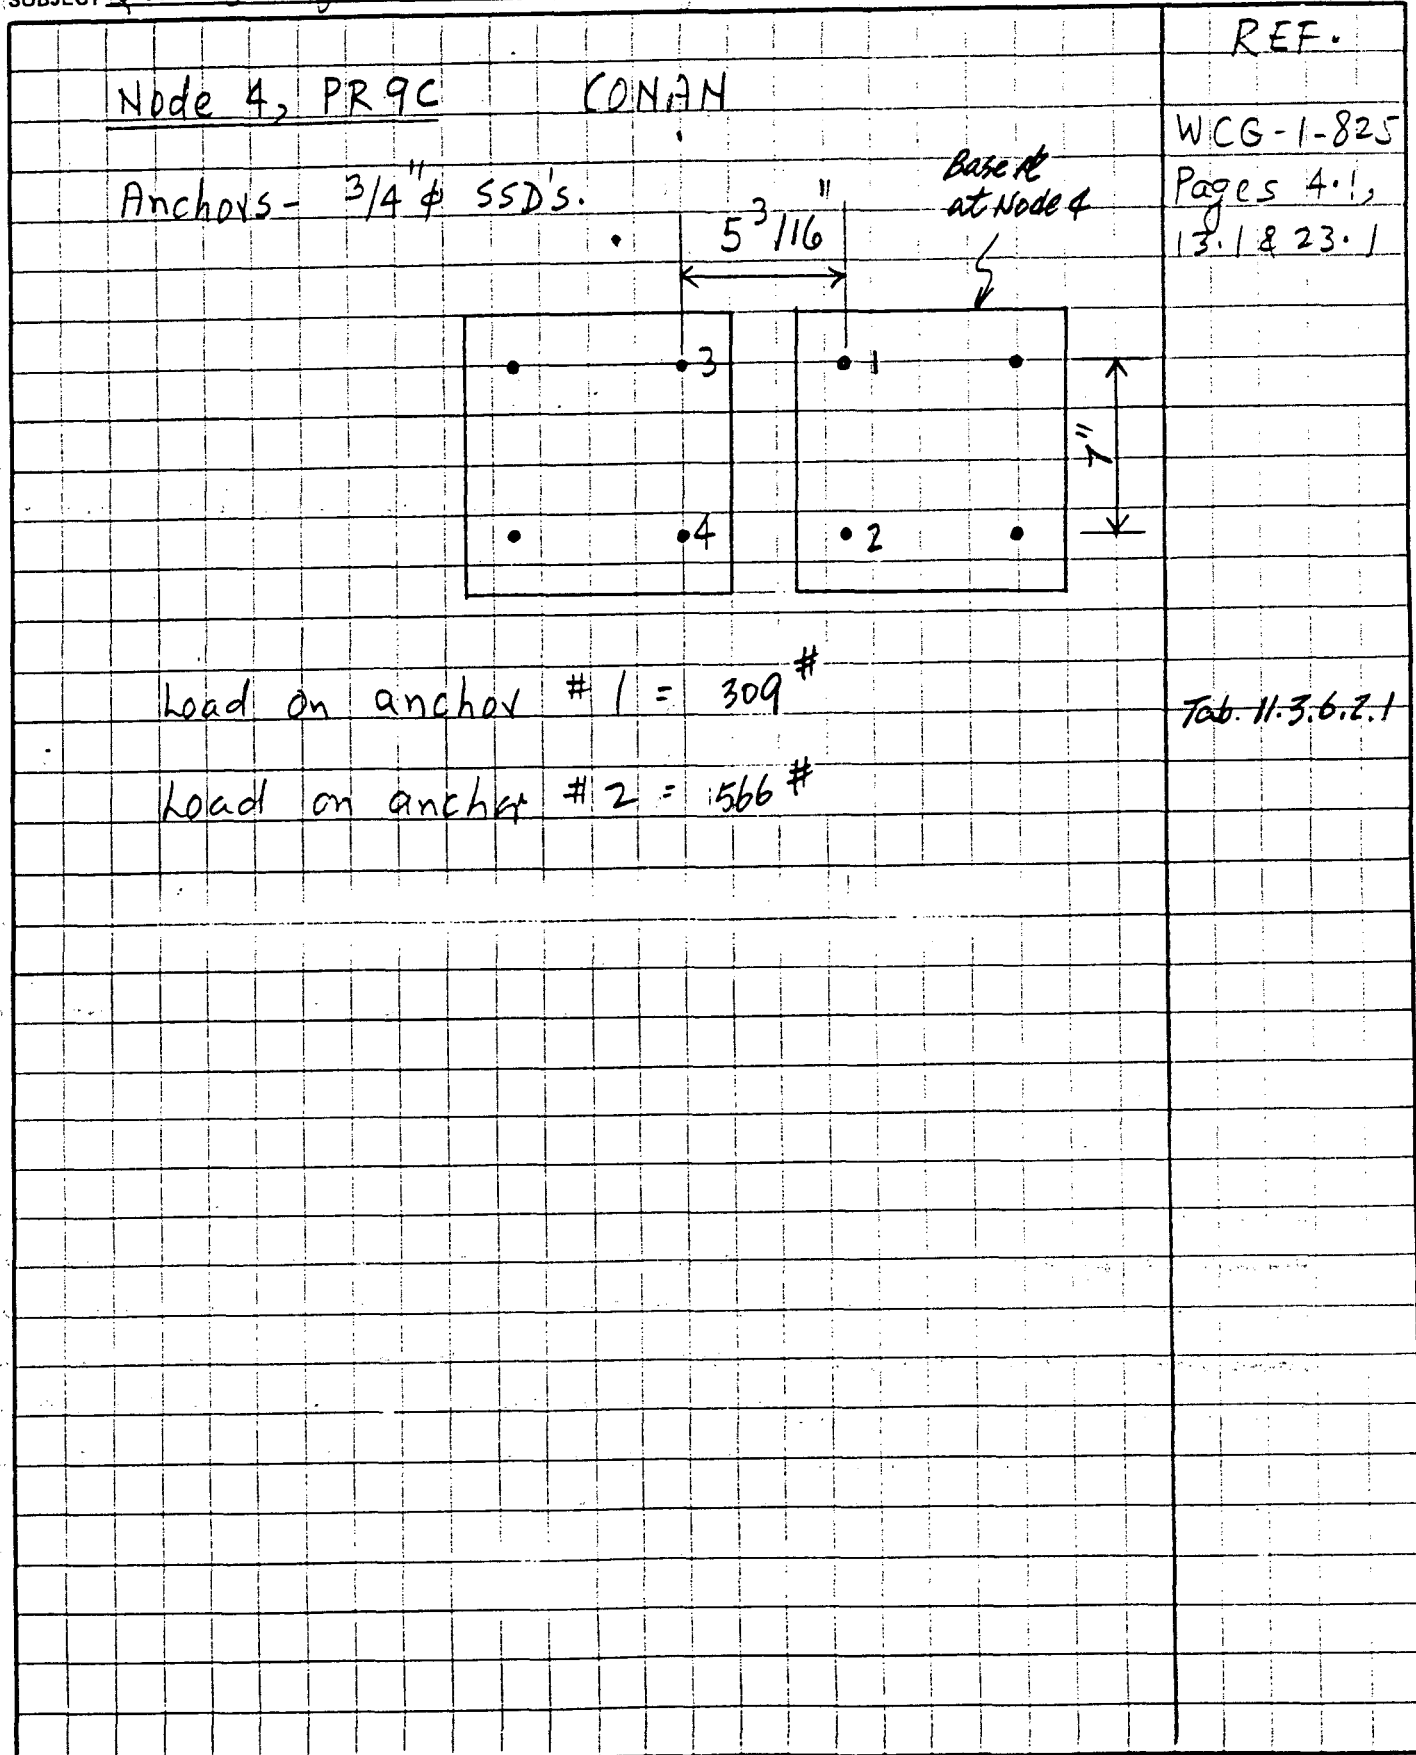 SUBJECT
REF.
Node 4, PR9C CONAN
WCG-1-825
Pages 4.1,
13.1 & 23.1
Anchors - 3/4"φ SSD's.
Base ℄
at Node 4
5 3/16"
3
1
7"
4
2
Load on anchor #1 = 309#
Tab. 11.3.6.2.1
Load on anchor #2 = 566#